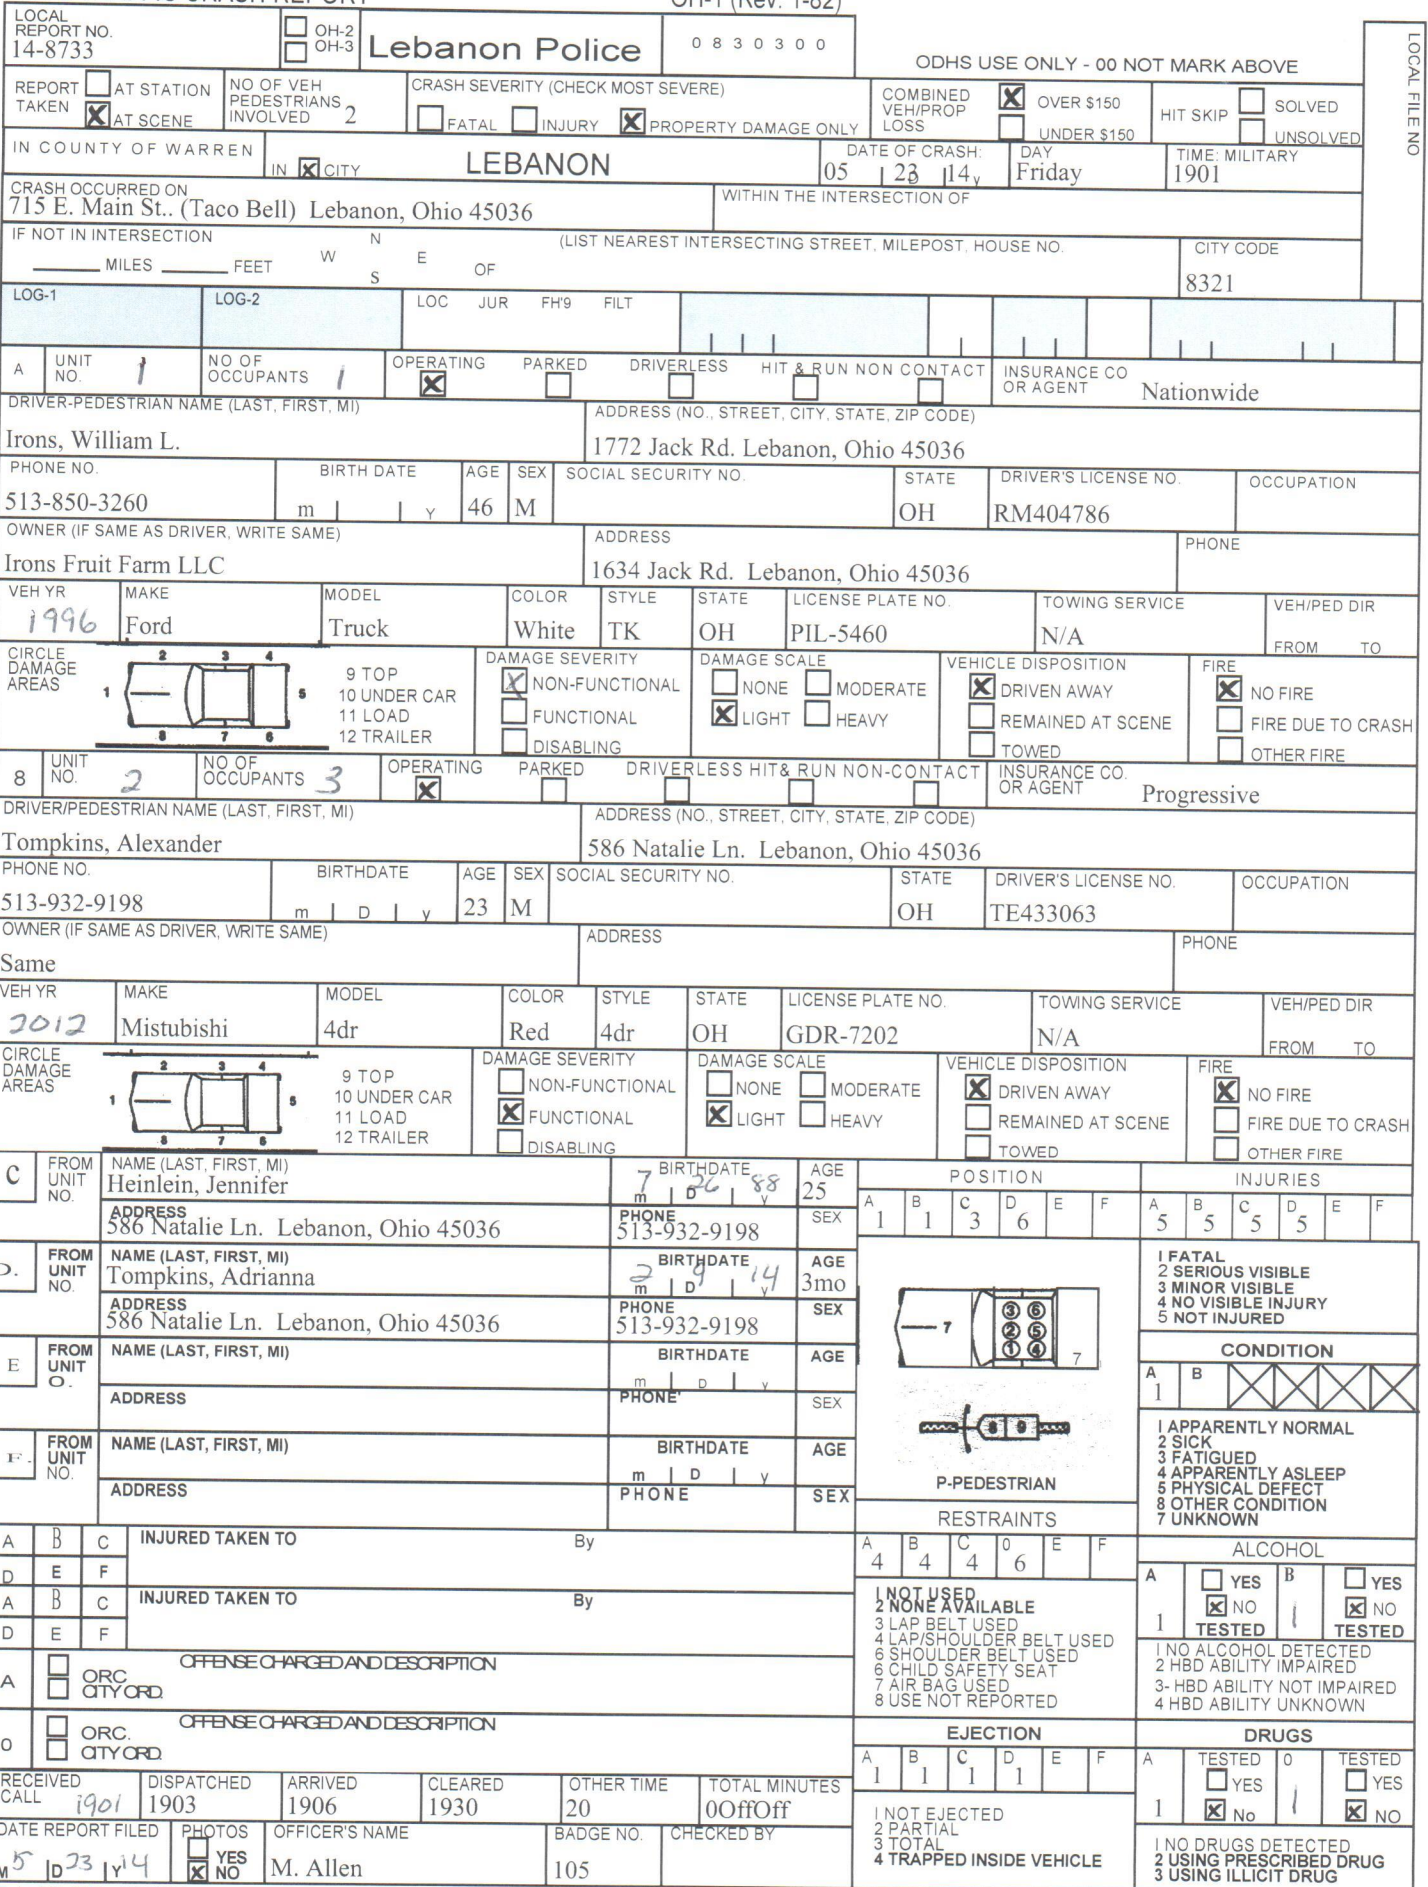 OH-1 (Rev. 1-82)
LOCAL REPORT NO. 14-8733
OH-2
OH-3
Lebanon Police
0 8 3 0 3 0 0
ODHS USE ONLY - 00 NOT MARK ABOVE
LOCAL FILE NO
REPORT TAKEN
AT STATION
AT SCENE
NO OF VEH PEDESTRIANS INVOLVED 2
CRASH SEVERITY (CHECK MOST SEVERE)
FATAL INJURY PROPERTY DAMAGE ONLY
COMBINED VEH/PROP LOSS
OVER $150
UNDER $150
HIT SKIP
SOLVED
UNSOLVED
IN COUNTY OF WARREN
IN CITY
LEBANON
DATE OF CRASH: 05 23 14 y
DAY Friday
TIME: MILITARY 1901
CRASH OCCURRED ON
715 E. Main St.. (Taco Bell) Lebanon, Ohio 45036
WITHIN THE INTERSECTION OF
IF NOT IN INTERSECTION
MILES FEET
N
W E
S
OF
(LIST NEAREST INTERSECTING STREET, MILEPOST, HOUSE NO.
CITY CODE
8321
LOG-1 LOG-2 LOC JUR FH'9 FILT
A UNIT NO. 1
NO OF OCCUPANTS 1
OPERATING PARKED DRIVERLESS HIT & RUN NON CONTACT
INSURANCE CO OR AGENT Nationwide
DRIVER-PEDESTRIAN NAME (LAST, FIRST, MI)
Irons, William L.
ADDRESS (NO., STREET, CITY, STATE, ZIP CODE)
1772 Jack Rd. Lebanon, Ohio 45036
PHONE NO. BIRTH DATE AGE SEX SOCIAL SECURITY NO. STATE DRIVER'S LICENSE NO. OCCUPATION
513-850-3260 m Y 46 M OH RM404786
OWNER (IF SAME AS DRIVER, WRITE SAME)
Irons Fruit Farm LLC
ADDRESS
1634 Jack Rd. Lebanon, Ohio 45036
PHONE
VEH YR MAKE MODEL COLOR STYLE STATE LICENSE PLATE NO. TOWING SERVICE VEH/PED DIR
1996 Ford Truck White TK OH PIL-5460 N/A FROM TO
CIRCLE DAMAGE AREAS
2 3 4
1 5
8 7 6
9 TOP
10 UNDER CAR
11 LOAD
12 TRAILER
DAMAGE SEVERITY
NON-FUNCTIONAL
FUNCTIONAL
DISABLING
DAMAGE SCALE
NONE MODERATE
LIGHT HEAVY
VEHICLE DISPOSITION
DRIVEN AWAY
REMAINED AT SCENE
TOWED
FIRE
NO FIRE
FIRE DUE TO CRASH
OTHER FIRE
8 UNIT NO. 2
NO OF OCCUPANTS 3
OPERATING PARKED DRIVERLESS HIT& RUN NON-CONTACT
INSURANCE CO. OR AGENT Progressive
DRIVER/PEDESTRIAN NAME (LAST, FIRST, MI)
Tompkins, Alexander
ADDRESS (NO., STREET, CITY, STATE, ZIP CODE)
586 Natalie Ln. Lebanon, Ohio 45036
PHONE NO. BIRTHDATE AGE SEX SOCIAL SECURITY NO. STATE DRIVER'S LICENSE NO. OCCUPATION
513-932-9198 m D y 23 M OH TE433063
OWNER (IF SAME AS DRIVER, WRITE SAME)
Same
ADDRESS
PHONE
VEH YR MAKE MODEL COLOR STYLE STATE LICENSE PLATE NO. TOWING SERVICE VEH/PED DIR
2012 Mistubishi 4dr Red 4dr OH GDR-7202 N/A FROM TO
CIRCLE DAMAGE AREAS
2 3 4
1 5
8 7 6
9 TOP
10 UNDER CAR
11 LOAD
12 TRAILER
DAMAGE SEVERITY
NON-FUNCTIONAL
FUNCTIONAL
DISABLING
DAMAGE SCALE
NONE MODERATE
LIGHT HEAVY
VEHICLE DISPOSITION
DRIVEN AWAY
REMAINED AT SCENE
TOWED
FIRE
NO FIRE
FIRE DUE TO CRASH
OTHER FIRE
C FROM UNIT NO.
NAME (LAST, FIRST, MI)
Heinlein, Jennifer
BIRTHDATE 7 26 88 m D y
AGE 25
ADDRESS
586 Natalie Ln. Lebanon, Ohio 45036
PHONE
513-932-9198
SEX
D. FROM UNIT NO.
NAME (LAST, FIRST, MI)
Tompkins, Adrianna
BIRTHDATE 2 9 14 m D y
AGE 3mo
ADDRESS
586 Natalie Ln. Lebanon, Ohio 45036
PHONE
513-932-9198
SEX
E FROM UNIT O.
NAME (LAST, FIRST, MI) BIRTHDATE AGE
m D y
ADDRESS PHONE' SEX
F. FROM UNIT NO.
NAME (LAST, FIRST, MI) BIRTHDATE AGE
m D y
ADDRESS PHONE SEX
POSITION
A 1 B 1 C 3 D 6 E F
7
3 6
2 5
1 4
7
8 9
P-PEDESTRIAN
INJURIES
A 5 B 5 C 5 D 5 E F
I FATAL
2 SERIOUS VISIBLE
3 MINOR VISIBLE
4 NO VISIBLE INJURY
5 NOT INJURED
CONDITION
A 1 B
I APPARENTLY NORMAL
2 SICK
3 FATIGUED
4 APPARENTLY ASLEEP
5 PHYSICAL DEFECT
8 OTHER CONDITION
7 UNKNOWN
A B C
D E F
INJURED TAKEN TO By
A B C
D E F
INJURED TAKEN TO By
RESTRAINTS
A 4 B 4 C 4 0 6 E F
I NOT USED
2 NONE AVAILABLE
3 LAP BELT USED
4 LAP/SHOULDER BELT USED
6 SHOULDER BELT USED
6 CHILD SAFETY SEAT
7 AIR BAG USED
8 USE NOT REPORTED
ALCOHOL
A 1 YES NO TESTED
B 1 YES NO TESTED
I NO ALCOHOL DETECTED
2 HBD ABILITY IMPAIRED
3- HBD ABILITY NOT IMPAIRED
4 HBD ABILITY UNKNOWN
A ORC CITY ORD.
OFFENSE CHARGED AND DESCRIPTION
0 ORC. CITY ORD.
OFFENSE CHARGED AND DESCRIPTION
EJECTION
A 1 B 1 C 1 D 1 E F
I NOT EJECTED
2 PARTIAL
3 TOTAL
4 TRAPPED INSIDE VEHICLE
DRUGS
A 1 TESTED YES No
0 1 TESTED YES NO
I NO DRUGS DETECTED
2 USING PRESCRIBED DRUG
3 USING ILLICIT DRUG
RECEIVED CALL DISPATCHED ARRIVED CLEARED OTHER TIME TOTAL MINUTES
1901 1903 1906 1930 20 0OffOff
DATE REPORT FILED PHOTOS OFFICER'S NAME BADGE NO. CHECKED BY
M 5 D 23 Y 14 YES NO M. Allen 105